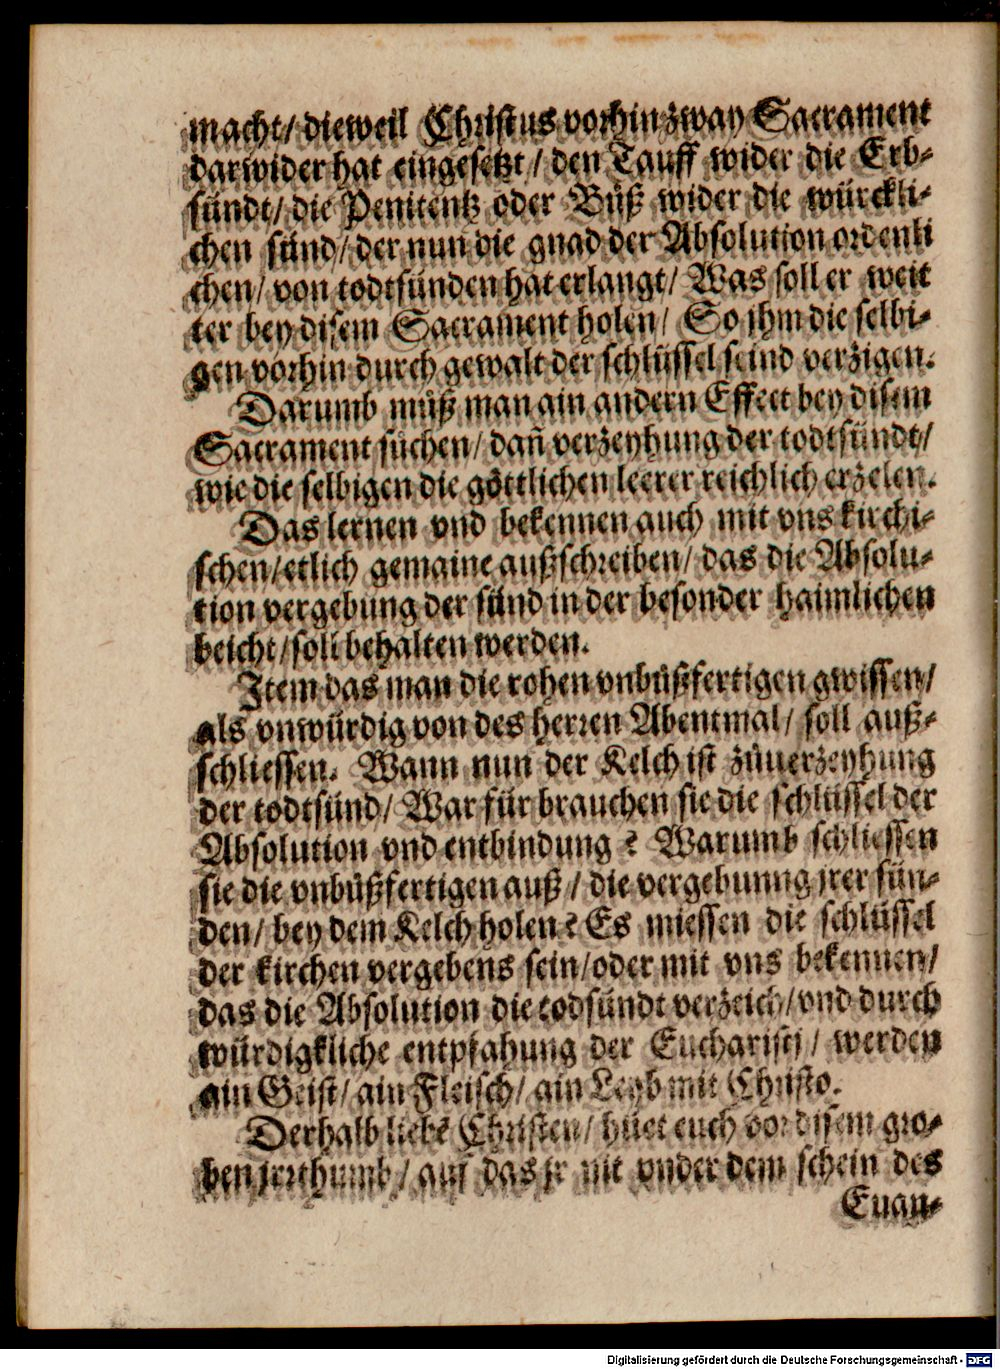 macht/ dieweil Christus vorhin zway Sacrament
darwider hat eingesetzt / den Tauff wider die Erb-
sündt/ die Penitentz oder Bůß wider die würckli-
chen sünd/ der nun die gnad der Absolution ordenli
chen/ von todtsünden hat erlangt/ Was soll er weit
ter bey disem Sacrament holen/ So jhm die selbi-
gen vorhin durch gewalt der schlüssel seind verzigen.
Darumb můß man ain andern Effect bey disem
Sacrament sůchen/ dañ verzeyhung der todtsündt/
wie die selbigen die göttlichen leerer reichlich erzelen.
Das lernen vnd bekennen auch mit vns kirchi-
schen/etlich gemaine außschreiben/ das die Absolu-
tion vergebung der sünd in der besonder haimlichen
beicht/soll behalten werden.
Item das man die rohen vnbůßfertigen gwissen/
als vnwürdig von des herren Abentmal/ soll auß-
schliessen. Wann nun der Kelch ist zůuerzeyhung
der todtsünd/ War für brauchen sie die schlüssel der
Absolution vnd entbindung? Warumb schliessen
sie die vnbůßfertigen auß / die vergebunng jrer sün-
den/ bey dem Kelch holen? Es miessen die schlüssel
der kirchen vergebens sein/oder mit vns bekennen/
das die Absolution die todsündt verzeich/vnd durch
würdigkliche entpfahung der Eucharisti / werden
ain Geist/ ain Fleisch/ ain Leyb mit Christo.
Derhalb liebē Christen/ hüet euch vor disem gro-
ben jrrthumb/ auf das jr nit vnder dem schein des
Euan-
Digitalisierung gefördert durch die Deutsche Forschungsgemeinschaft - DFG